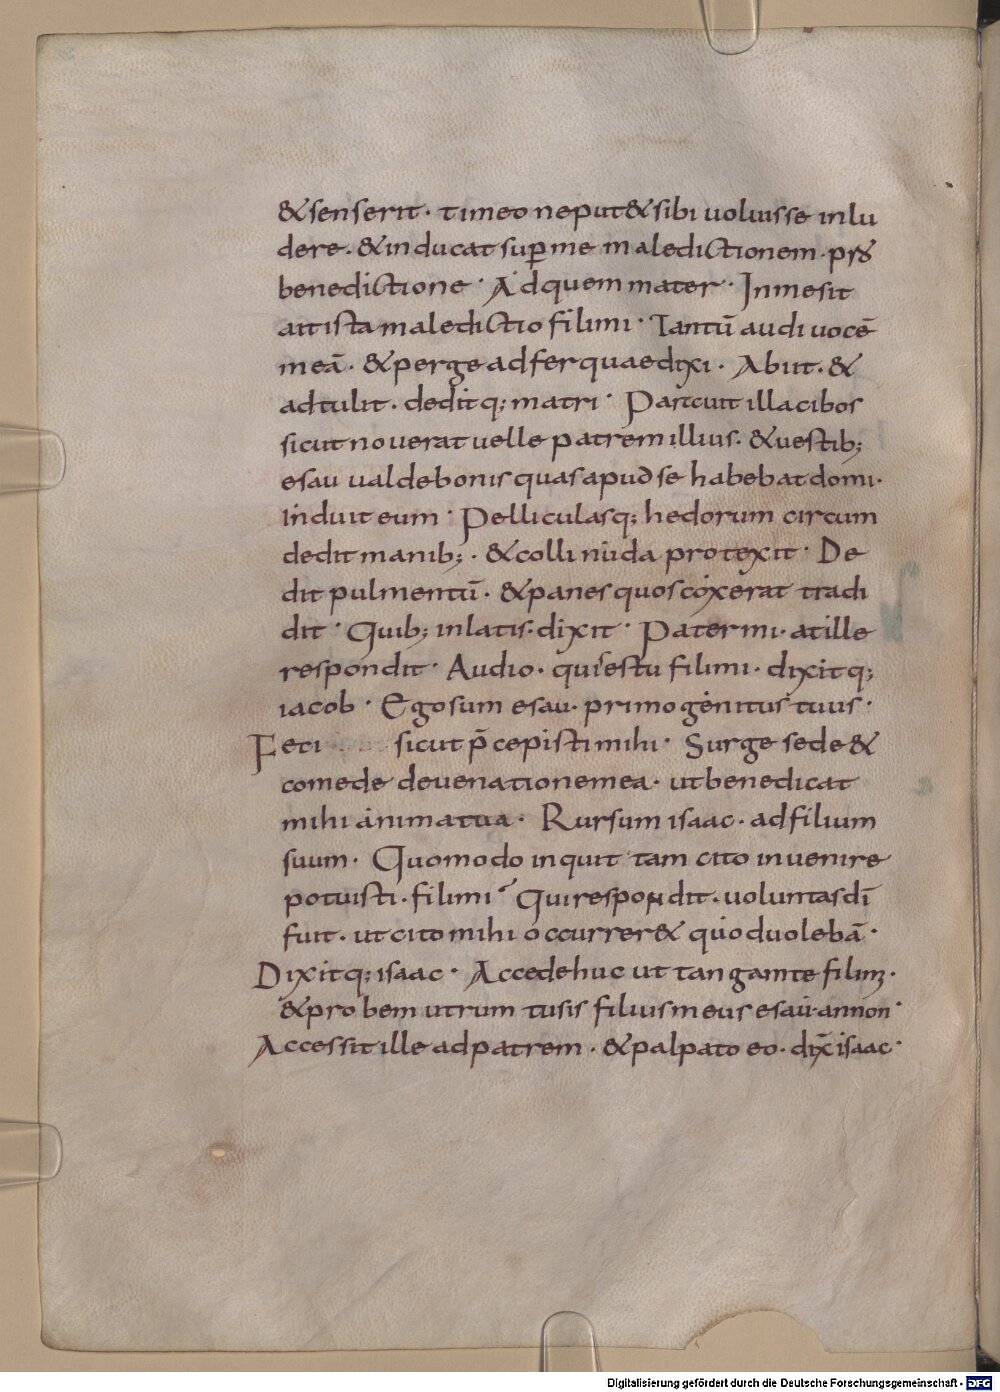 & senserit · timeo ne put& sibi uoluisse inlu
dere · & inducat sup me maledictionem · p̄r
benedictione · Ad quem mater · In me sit
ait ista maledictio fili mi · Tantū audi uocē
meā · & perge adfer quae dixi · Abiit · &
adtulit · deditq; matri · Parauit illa cibos
sicut nouerat uelle patrem illius · & uestib;
esau ualde bonis quas apud se habebat domi ·
induit eum · Pelliculasq; hedorum circum
dedit manib; · & colli nuda protexit · De
dit pulmentū · & panes quos coxerat tradi
dit · Quib; inlatis · dixit · Pater mi · at ille
respondit · Audio · quis es tu fili mi · dixitq;
iacob · Ego sum esau · primogenitus tuus ·
Feci sicut p̄cepisti mihi · Surge sede &
comede de uenatione mea · ut benedicat
mihi anima tua · Rursum isaac · ad filium
suum · Quomodo inquit tam cito inuenire
potuisti · fili mi Qui respondit · uoluntas dī
fuit · ut cito mihi occurrer& quod uolebā ·
Dixitq; isaac · Accede huc ut tangam te fili m ·
& probem utrum tu sis filius meus esau · an non ·
Accessit ille ad patrem · & palpato eo · dix̄ isaac ·
Digitalisierung gefördert durch die Deutsche Forschungsgemeinschaft - DFG